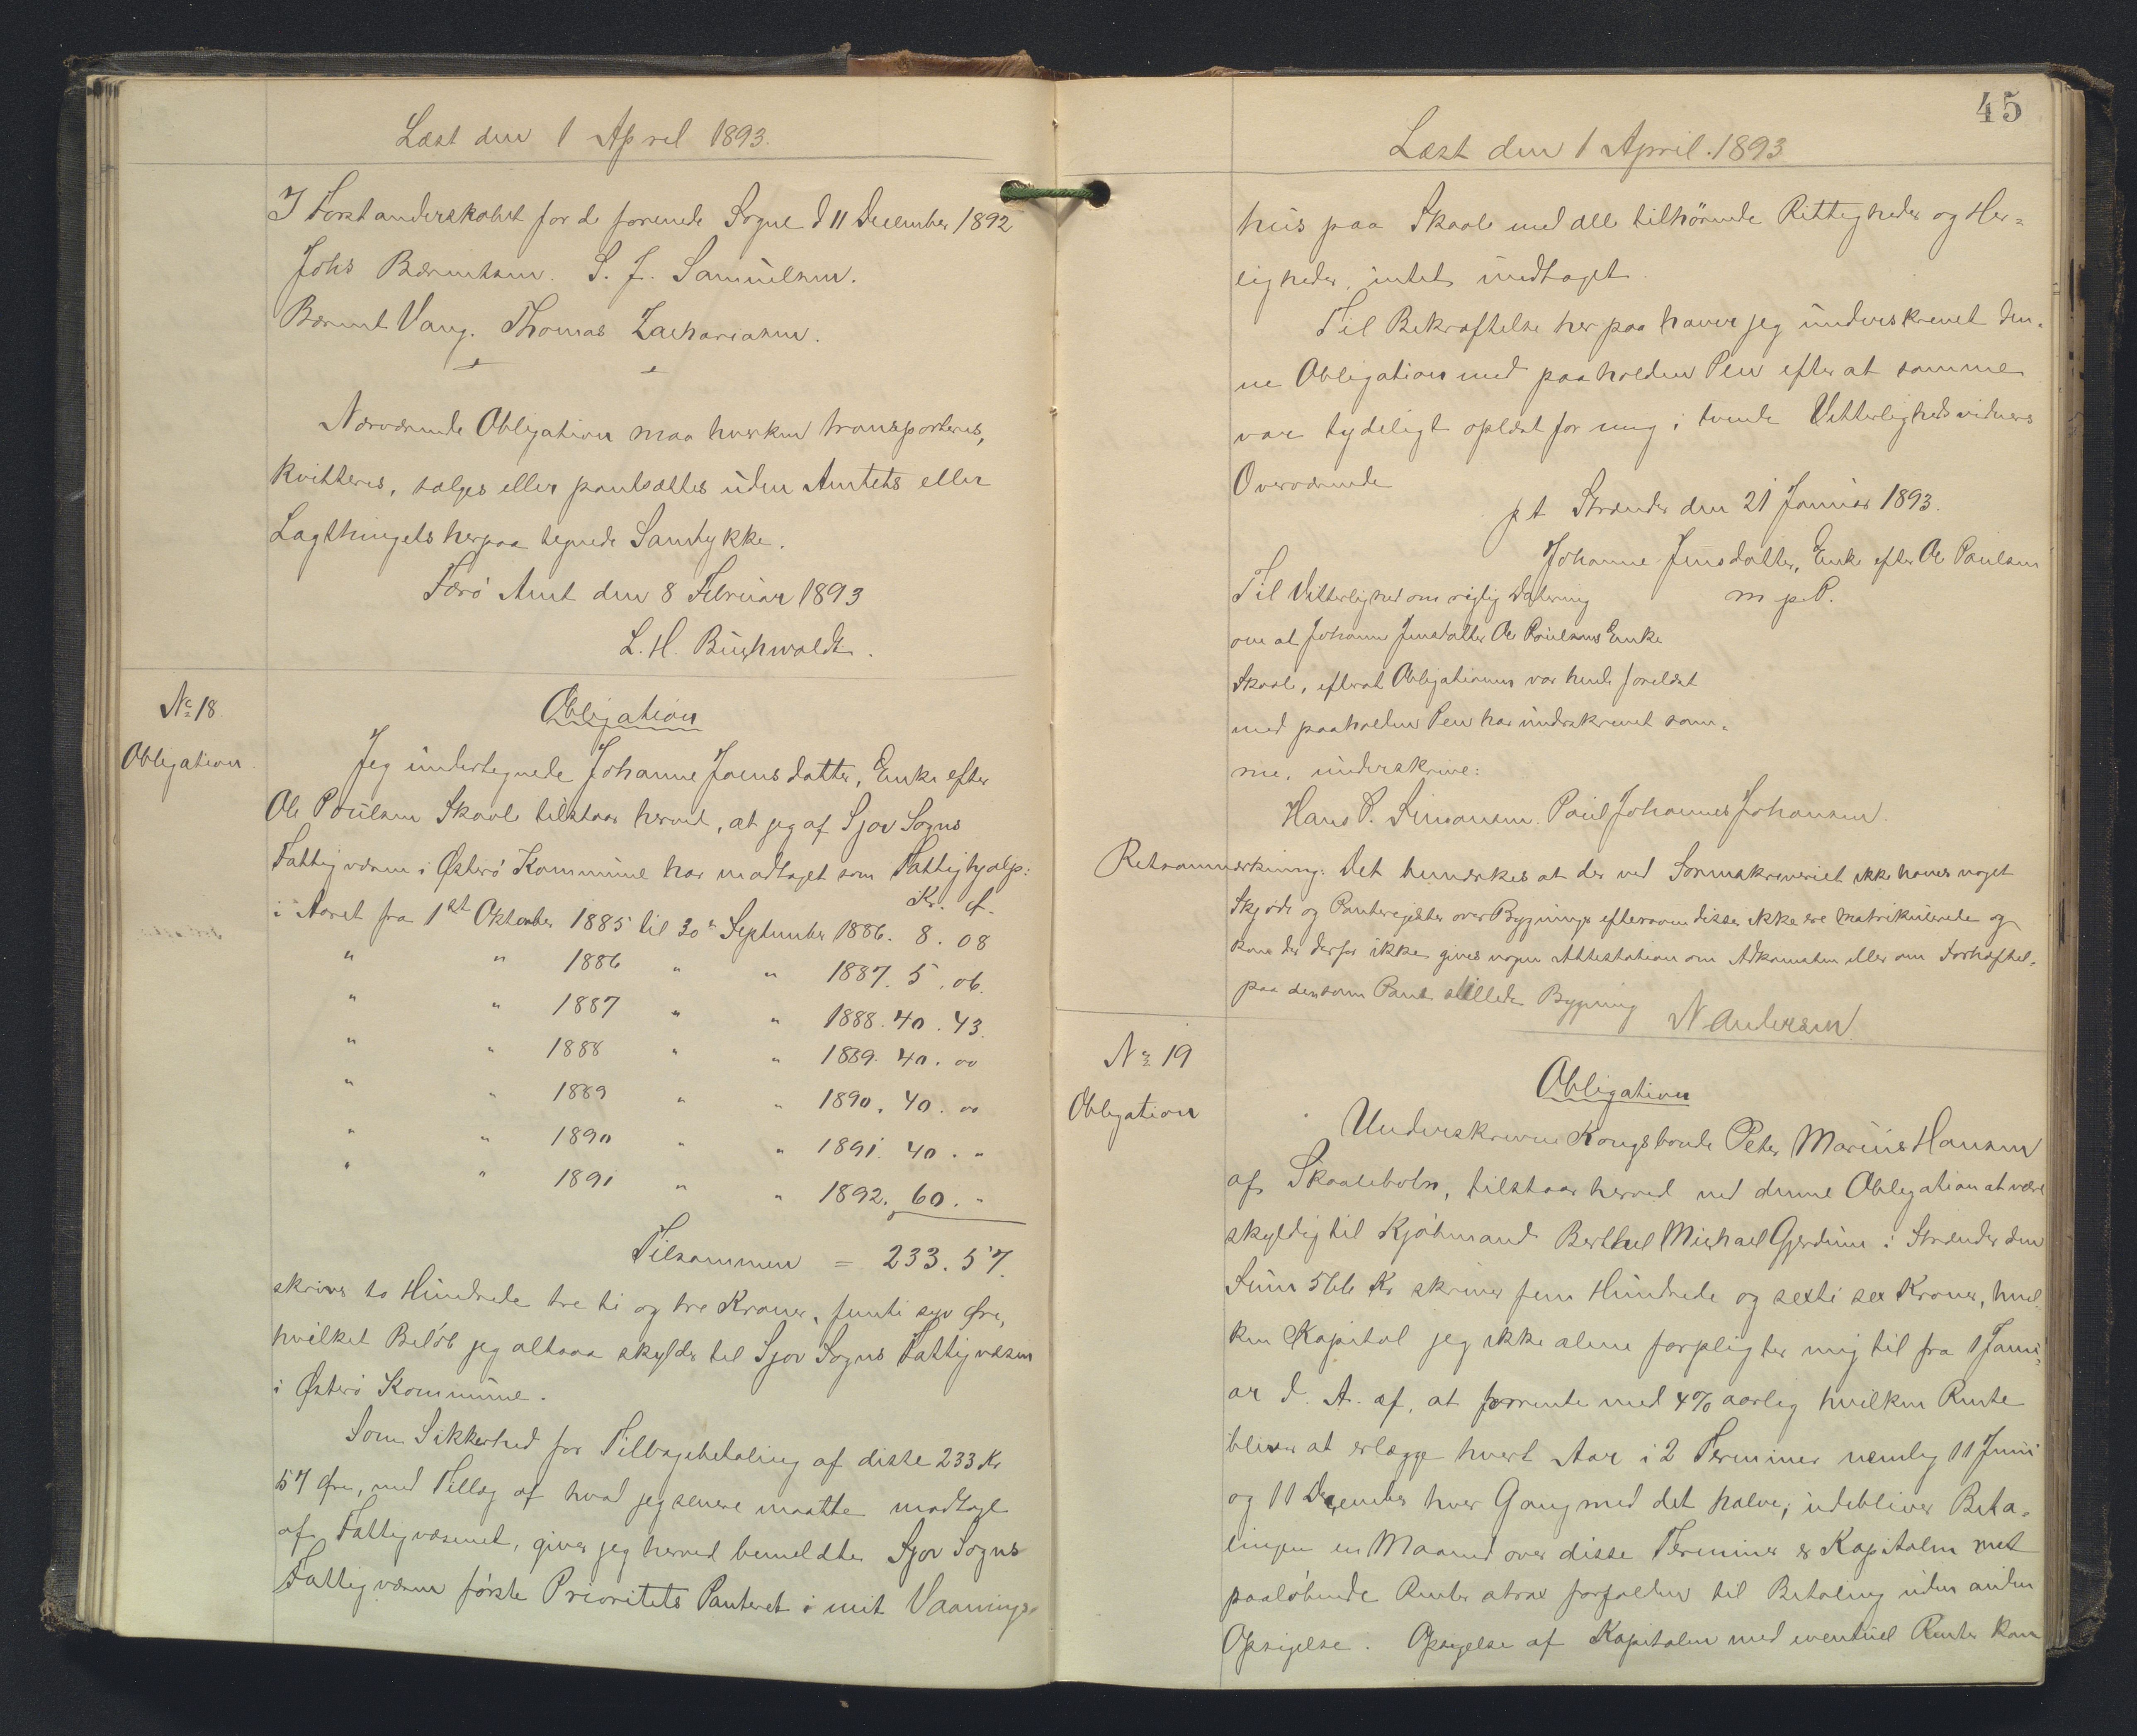 Læst den 1 April 1893.
I Forstanderskabet for de forenede Sogne d 11 December 1892
Johs Bærentsen. S. J. Samuelsen.
Bærent Vang. Thomas Zachariasen.
Nærværende Obligation maa hverken transporteres,
kvitteres, sælges eller pantsættes uden Amtets eller
Lagthingets herpaa tegnede Samtykke.
Færö Amt den 8 Februar 1893
L. H. Buchwaldt.
No 18
Obligation.
Obligation
Jeg undertegnede Johanne Joensdatter, Enke efter
Ole Poulsen Skaale tilstaar herved, at jeg af Sjov Sogns
Fattigvæsen i Østerö Kommune har modtaget som Fattighjælp:
Kr. Ø.
i Aaret fra 1st Oktober 1885 til 30 September 1886. 8. 08
" " 1886 " " 1887. 5. 06.
" " 1887 " " 1888. 40. 43.
" " 1888 " " 1889. 40. 00
" " 1889 " " 1890. 40. 00
" " 1890 " " 1891. 40. "
" " 1891 " " 1892. 60. "
Tilsammen = 233. 57.
skriver to Hundrede tre ti og tre Kroner, femti syv Øre,
hvilket Belöb jeg altsaa skylder til Sjov Sogns Fattigvæsen
i Østerö Kommune.
Som Sikkerhed for Tilbagebetaling af disse 233 Kr
57 Øre, med Tillæg af hvad jeg senere maatte modtage
af Fattigvæsenet, giver jeg herved bemeldte Sjov Sogns
Fattigvæsen förste Prioritets Panteret i mit Vaanings-
45
Læst den 1 April. 1893
hus paa Skaale med all tilhörende Rettigheder og Her=
ligheder, intet undtaget.
Til Bekræftelse herpaa haver jeg underskrevet den-
ne Obligation med paaholden Pen efter at samme
var tydeligt oplæst for mig i tvende Vitterlighedsvidners
Overværende
p t Strænder den 21 Januar 1893.
Johanne Jensdatter, Enke efter Ole Poulsen
m p. P.
Til Vitterlighed om rigtig Datering
om at Johanne Jensdatter Ole Poulsens Enke
Skaale, efterat Obligationen var hende forelæst
med paaholden Pen har underskrevet sam-
me, underskrive:
Hans P. Simonsen. Poul Johannes Johansen.
Retsanmærkning: Det bemærkes at der ved Sorenskriveriet ikke haves noget
Skjöde og Panteregister over Bygninger eftersom disse ikke ere matrikulerede og
kan der derfor ikke gives nogen Attestation om Adkomsten eller om Forhæftel-
paa den som Pant stillede Bygning N Andersen
No 19
Obligation
Obligation
Underskreven Kongsbonde Peter Marius Hansen
af Skaalebotn, tilstaar herved ved denne Obligation at være
skyldig til Kjöbmand Berthel Michael Gjerdum i Strænder den
Sum 566 Kr skriver fem Hundrede og sexti sex Kroner, hvil
ken Kapital jeg ikke alene forpligter mig til fra 1 Janu=
ar d. A. af, at forrente med 4% aarlig hvilken Rente
bliver at erlægge hvert Aar i 2 Terminer nemlig 11 Juni
og 11 December hver Gang med det halve; udebliver Beta-
lingen en Maaned over disse Terminer er Kapitalen met
paalöbende Renter strax forfalden til Betaling uden anden
Opsigelse. Opsigelse af Kapitalen med eventuel Renter kan